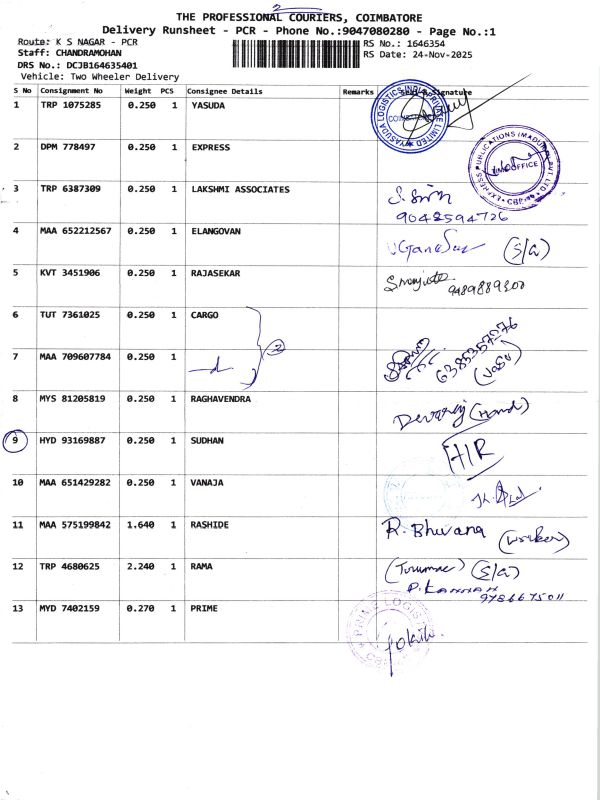 2
THE PROFESSIONAL COURIERS, COIMBATORE
Delivery Runsheet - PCR - Phone No.:9047080280 - Page No.:1
Route: K S NAGAR - PCR RS No.: 1646354
Staff: CHANDRAMOHAN RS Date: 24-Nov-2025
DRS No.: DCJB164635401
Vehicle: Two Wheeler Delivery
S No Consignment No Weight PCS Consignee Details Remarks Signature
1 TRP 1075285 0.250 1 YASUDA
YASUDA LOGISTICS INDIA PRIVATE LIMITED
2 DPM 778497 0.250 1 EXPRESS
EXPRESS PUBLICATIONS (MADURAI) PVT LTD OFFICE
3 TRP 6387309 0.250 1 LAKSHMI ASSOCIATES
9042594726
4 MAA 652212567 0.250 1 ELANGOVAN (S/G)
5 KVT 3451906 0.250 1 RAJASEKAR
9489889300
6 TUT 7361025 0.250 1 CARGO
2
7 MAA 709607784 0.250 1 -d-
6385357076
8 MYS 81205819 0.250 1 RAGHAVENDRA Devaraj (Hand)
9 HYD 93169887 0.250 1 SUDHAN HIR
10 MAA 651429282 0.250 1 VANAJA
11 MAA 575199842 1.640 1 RASHIDE R. Bhuvana (Worker)
12 TRP 4680625 2.240 1 RAMA (S/G)
P. KANNAN
9786675011
13 MYD 7402159 0.270 1 PRIME
PRIME LOGISTICS